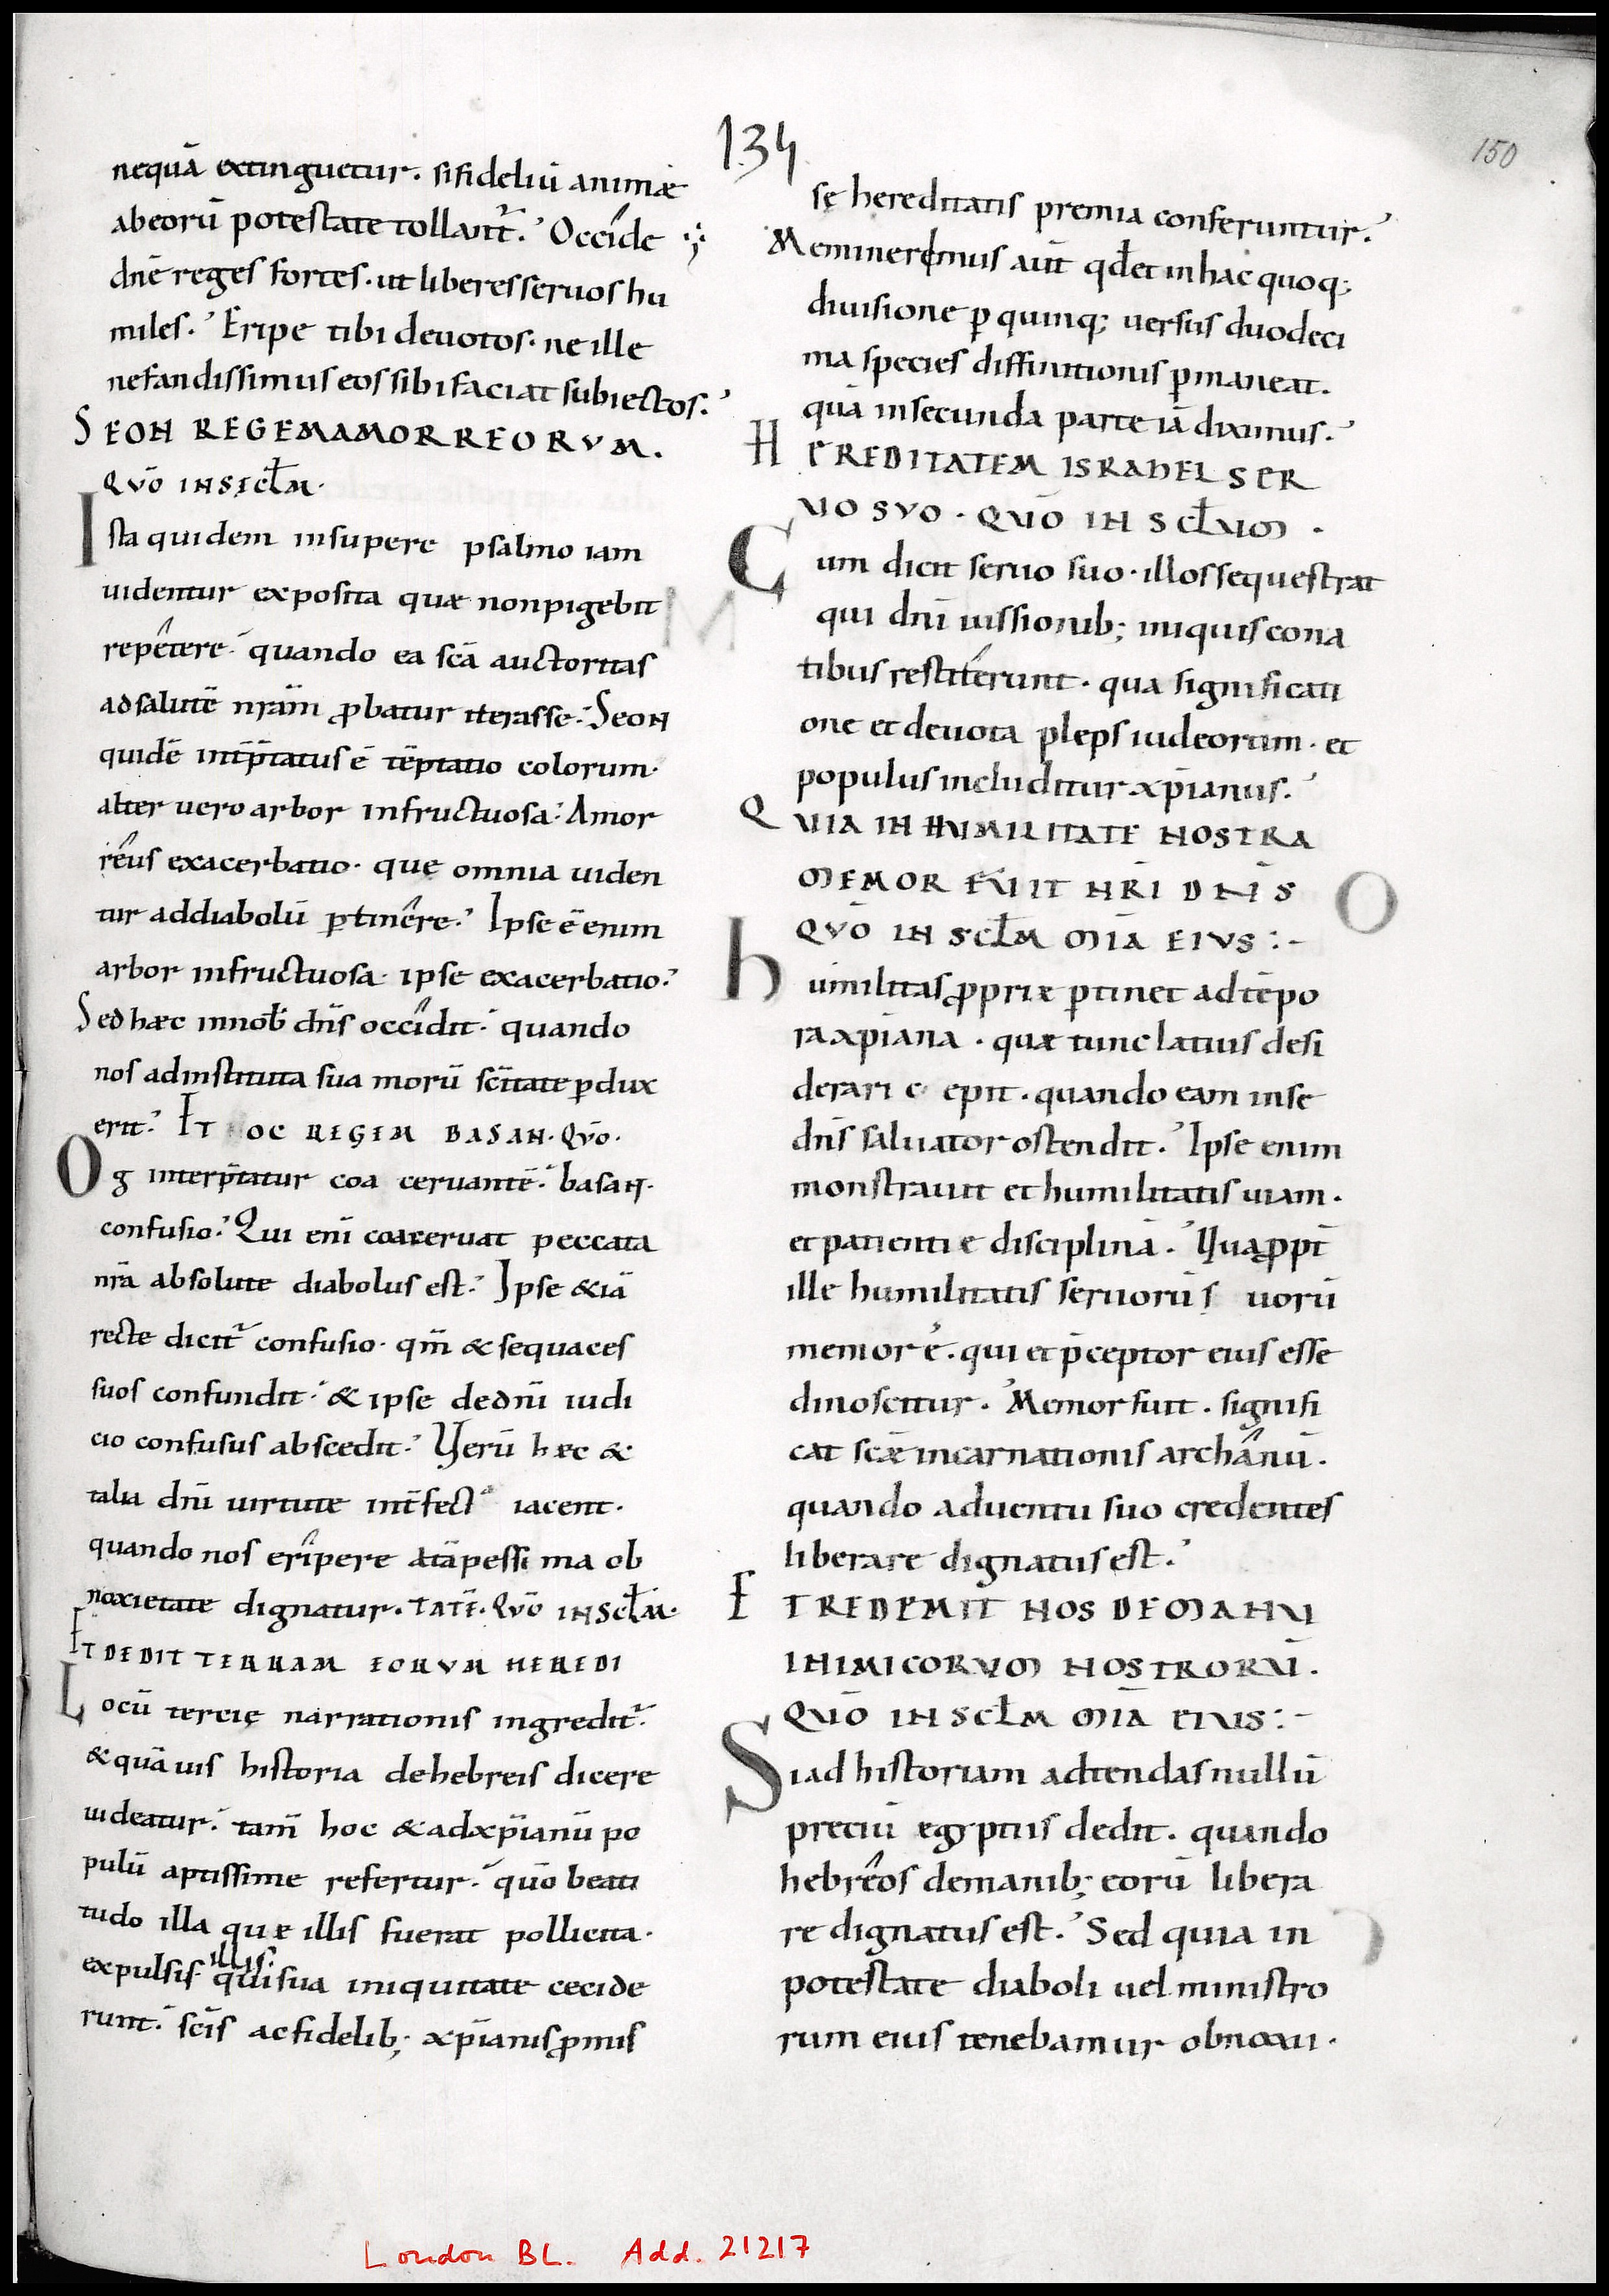 134
150
nequā extinguetur. si fideliū animæ
ab eorū potestate tollant̄. Occide
dn̄e reges fortes. ut liberes seruos hu
miles. Eripe tibi deuotos. ne ille
nefandissimus eos sibi faciat subiectos.
SEON REGEM AMORREORVM.
QVŌ IN SEC̄LM.
Ista quidem in supere psalmo iam
uidentur exposita quæ non pigebit
repetere. quando ea sc̄ā auctoritas
ad salutē nr̄am ꝓbatur iterasse. Seon
quidē int̄p̄tatus ē tēptatio colorum.
alter uero arbor infructuosa. Amor
reus exacerbatio. que omnia uiden
tur ad diabolū ꝑtinere. Ipse ē enim
arbor infructuosa. ipse exacerbatio.
Sed hæc in nob̄ dn̄s occidit. quando
nos ad instituta sua morū sc̄itate ꝑdux
erit. ET OC REGEM BASAN. QVŌ.
Og interp̄tatur coaceruantē. basan.
confusio. Qui eni̅ coaceruat peccata
nr̄a absolute diabolus est. Ipse &iā
recte dicit̄ confusio. qm̄ & sequaces
suos confundit. & ipse de dn̄i iudi
cio confusus abscedit. Verū hæc &
talia dn̄i uirtute int̄fecta iacent.
quando nos eripere a tā pessima ob
noxietate dignatur. TATĒ. QVŌ IN SC̄LM.
ET DEDIT TERRAM EORVM HEREDI
Locū tercię narrationis ingredit̄.
& quāuis historia de hebreis dicere
uideatur. tam̄ hoc & ad xp̄ianū po
pulū aptissime refertur. quō beati
tudo illa quæ illis fuerat pollicita.
expulsis illis. qui sua iniquitate cecide
runt. sc̄is ac fidelib; xp̄ianis ꝓmis
sę hereditatis premia conferuntur.
Meminerimus aūt qđ et in hac quoq;
diuisione ꝑ quinq; uersus duodeci
ma species diffinitionis ꝑmaneat.
quā in secunda parte iā diximus.
HEREDITATEM ISRAHEL SER
VO SVO. QVŌ IN SC̄LVM.
Cum dicit seruo suo. illos sequestrat
qui dn̄i iussionib; iniquis cona
tibus restiterunt. qua significati
one et deuota pleps iudeorum. et
populus includitur xp̄ianus.
QVIA IN HVMILITATE NOSTRA
MEMOR FVIT NR̄I DN̄S
QVŌ IN SC̄LM M̄IA EIVS:-
humilitas ꝓpriæ ꝑtinet ad tēpo
ra xp̄iana. quæ tunc latius desi
derari cepit. quando eam in se
dn̄s saluator ostendit. Ipse enim
monstrauit et humilitatis uiam.
et patientie disciplinā. Quaꝓpt̄
ille humilitatis seruorū suorū
memor ē. qui et p̄ceptor eius esse
dinoscitur. Memor fuit. signifi
cat scæ incarnationis archanū.
quando aduentu suo credentes
liberare dignatus est.
ET REDEMIT NOS DE MANV
INIMICORVM NOSTRORV̄.
QVŌ IN SC̄LM M̄IA EIVS:-
Si ad historiam adtendas nullū
preciū egyptiis dedit. quando
hebreos de manib; eorū libera
re dignatus est. Sed quia in
potestate diaboli uel ministro
rum eius tenebamur obnoxii.
M
O
London BL. Add. 21217